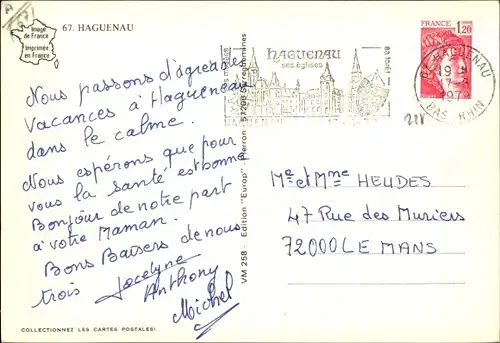 Image
de France
Imprimée
en France
67. HAGUENAU
Nous passons d'agréables
vacances à Haguenau
dans le calme.
Nous espérons que pour
vous la santé est bonne
Bonjour de notre part
à votre Maman.
Bons Baisers de nous
trois Jocelyne
Anthony
Michel
COLLECTIONNEZ LES CARTES POSTALES!
VM 258 - Edition "Europ" Pierron - 57206 Sarreguemines
HAGUENAU
ses églises
FRANCE
1,20
67 HAGUENAU
BAS RHIN
Me et Mme HEUDES
47 Rue des Muriers
72000 LE MANS